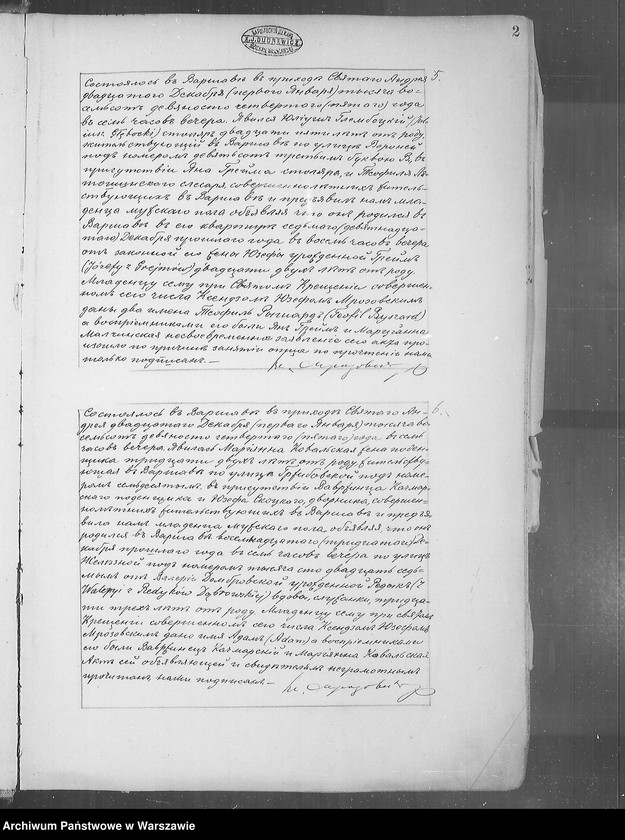 2
5.
Состоялось въ Варшавѣ въ приходѣ Святаго Андрея
двадцатаго Декабря (перваго Января) тысяча во-
семьсотъ девяносто четвертаго (пятаго) года
въ семь часовъ вечера. Явился Юліушъ Глембоцкій (Jul-
iusz Głębocki) столяръ двадцати пяти лѣтъ отъ роду,
жительствующій въ Варшавѣ по улицѣ Вороньей
подъ номеромъ девятьсотъ третьимъ буквою В, въ
присутствіи Яна Грейма столяра, и Теофиля
слесаря, совершеннолѣтнихъ житель-
ствующихъ въ Варшавѣ и предъявилъ намъ мла-
денца мужскаго пола объявляя что онъ родился въ
Варшавѣ въ его квартирѣ седьмаго (девятнадца-
таго) Декабря прошлаго года въ восемь часовъ вечера
отъ законной его жены Юзефы урожденной Греймъ
(Józefy z Grejmów) двадцати двухъ лѣтъ отъ роду.
Младенцу сему при Святомъ Крещеніи совершен-
номъ сего числа Ксендзомъ Юзефомъ Мрозовскимъ
даны два имена Теофиль Рышардъ (Teofil Ryszard)
а воспріемниками его были Янъ Греймъ и Марианна
Малчинская несвоевременное заявленіе сего акта про-
изошло по причинѣ занятій отца по прочтеніи нами
только подписанъ. —
6.
Состоялось въ Варшавѣ въ приходѣ Святаго Ан-
дрея двадцатаго Декабря (перваго Января) тысяча во-
семьсотъ девяносто четвертаго (пятаго) года въ семь
часовъ вечера. Явилась Марiянна Ковальская жена поден-
щика тридцати двухъ лѣтъ отъ роду, жительству-
ющая въ Варшавѣ по улицѣ Гржибовской подъ номе-
ромъ семьдесятымъ, въ присутствіи Вавржинца Качмар-
скаго поденщика и Юзефа Скоцкаго, дворника, совершен-
нолѣтнихъ жительствующихъ въ Варшавѣ и предъя-
вила намъ младенца мужскаго пола, объявляя, что онъ
родился въ Варшавѣ восемнадцатаго (тридцатаго) Де-
кабря прошлаго года въ семь часовъ вечера по улицѣ
Желѣзной подъ номеромъ тысяча сто двадцать седь-
мымъ отъ Валеріи Домбровской урожденной Редыкъ (
Waleryi z Redyków Dąbrowskiej) вдовы, служанки, тридца-
ти трехъ лѣтъ отъ роду. Младенцу сему при святомъ
Крещеніи совершенномъ сего числа Ксендзомъ Юзефомъ
Мрозовскимъ дано имя Адамъ (Adam) а воспріемниками
его были Вавржинецъ Качмарскій и Марiянна Ковальская
Актъ сей объявляющей и свидѣтелямъ неграмотнымъ
прочитанъ, нами подписанъ. —
Archiwum Państwowe w Warszawie